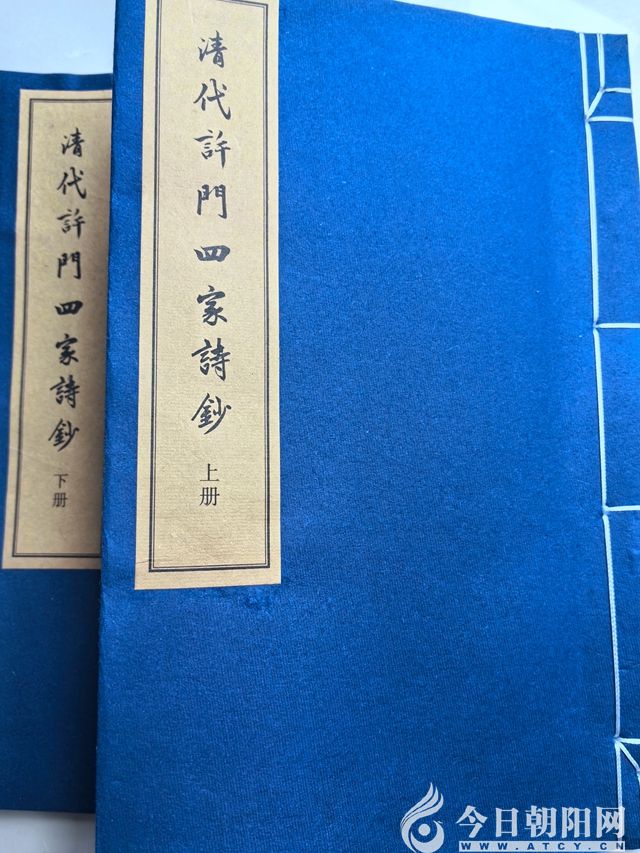 清代許門四家詩鈔
上册
清代許門四家詩鈔
下册
今日朝阳网
WWW.ATCY.CN